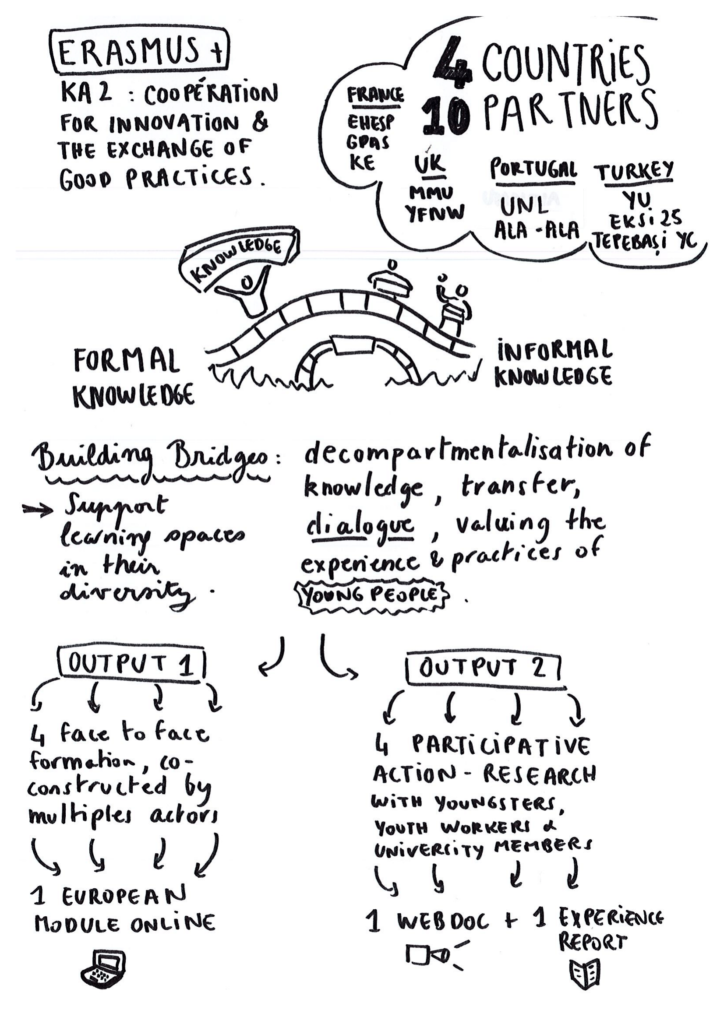 ERASMUS +
KA2 : COOPÉRATION
FOR INNOVATION &
THE EXCHANGE OF
GOOD PRACTICES.
4 COUNTRIES
10 PARTNERS
FRANCE
EHESP
GPAS
KE
UK
MMU
YFNW
PORTUGAL
UNL
ALA-ALA
TURKEY
YU
EKSi 25
TEPEBAŞI YC
KNOWLEDGE
FORMAL
KNOWLEDGE
INFORMAL
KNOWLEDGE
Building Bridges :
→ Support
learning spaces
in their
diversity.
decompartmentalisation of
knowledge, transfer,
dialogue, valuing the
experience & practices of
YOUNG PEOPLE.
OUTPUT 1
4 face to face
formation, co-
constructed by
multiples actors
1 EUROPEAN
MODULE ONLINE
OUTPUT 2
4 PARTICIPATIVE
ACTION-RESEARCH
WITH YOUNGSTERS,
YOUTH WORKERS &
UNIVERSITY MEMBERS
1 WEBDOC + 1 EXPERIENCE
REPORT